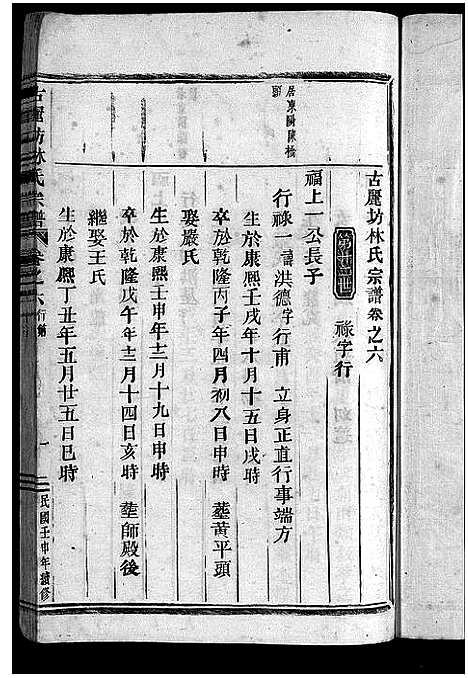 古麗坊林氏宗譜卷之六
第廿三世 祿字行
福上一公長子
居東陽陳橋頭
行祿一諱洪德字行甫 立身正直行事端方
生於康熙壬戌年十月十五日戌時
卒於乾隆丙子年四月初八日申時 塟黃平頭
娶嚴氏
生於康熙壬申年十二月十九日申時
卒於乾隆戊午年十二月十四日亥時 塟師殿後
繼娶王氏
生於康熙丁丑年五月廿五日巳時
古麗坊林氏宗譜 卷之六 行第 一 民國壬申年續修